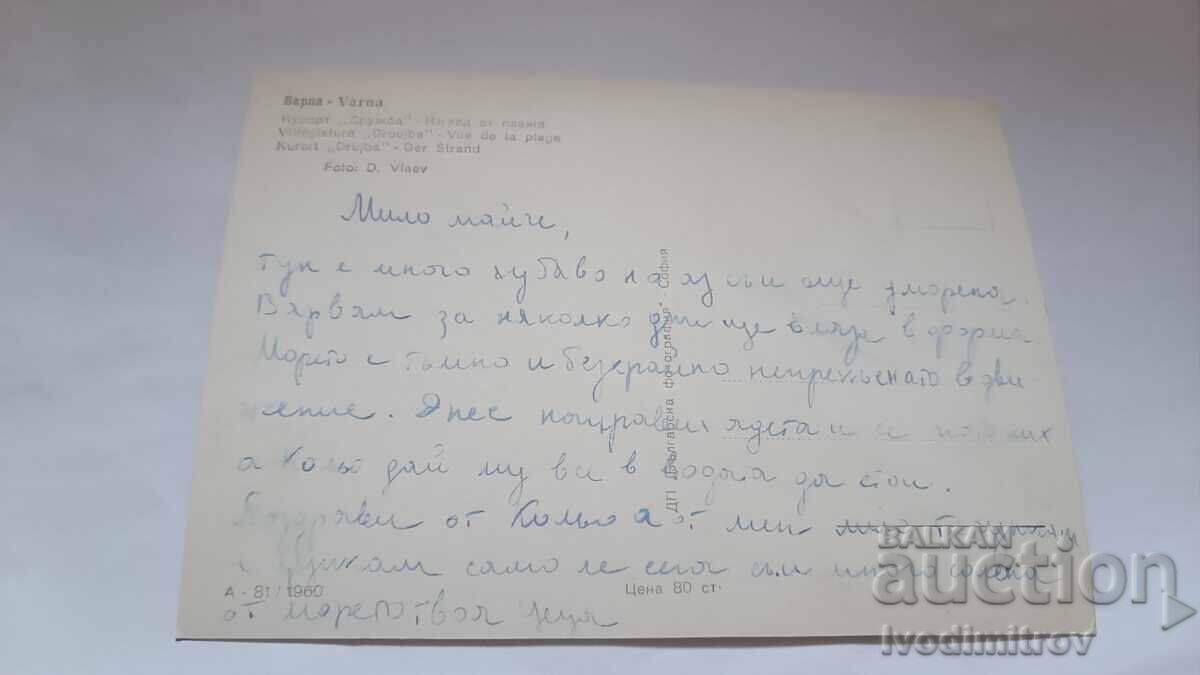 Варна - Varna
Курорт „Дружба" - Изглед от плажа
Villegiatura „Droujba" - Vue de la plage
Kurort „Drujba" - Der Strand
Foto: D. Vlaev
Мило майче,
тук е много хубаво но аз съм още уморена.
Вярвам за няколко дни ще вляза в форма.
Морето е тъмно и безкрайно непрекъснато в дви-
жение. Днес направих и се
а Кольо дай му все в водата да стои.
Поздрави от Кольо а от мен
само че сега съм много солена
от морето твоя
ДП „Българска фотография" - София
А - 81 / 1960
Цена 80 ст.
BALKAN
auction
Ivodimitrov